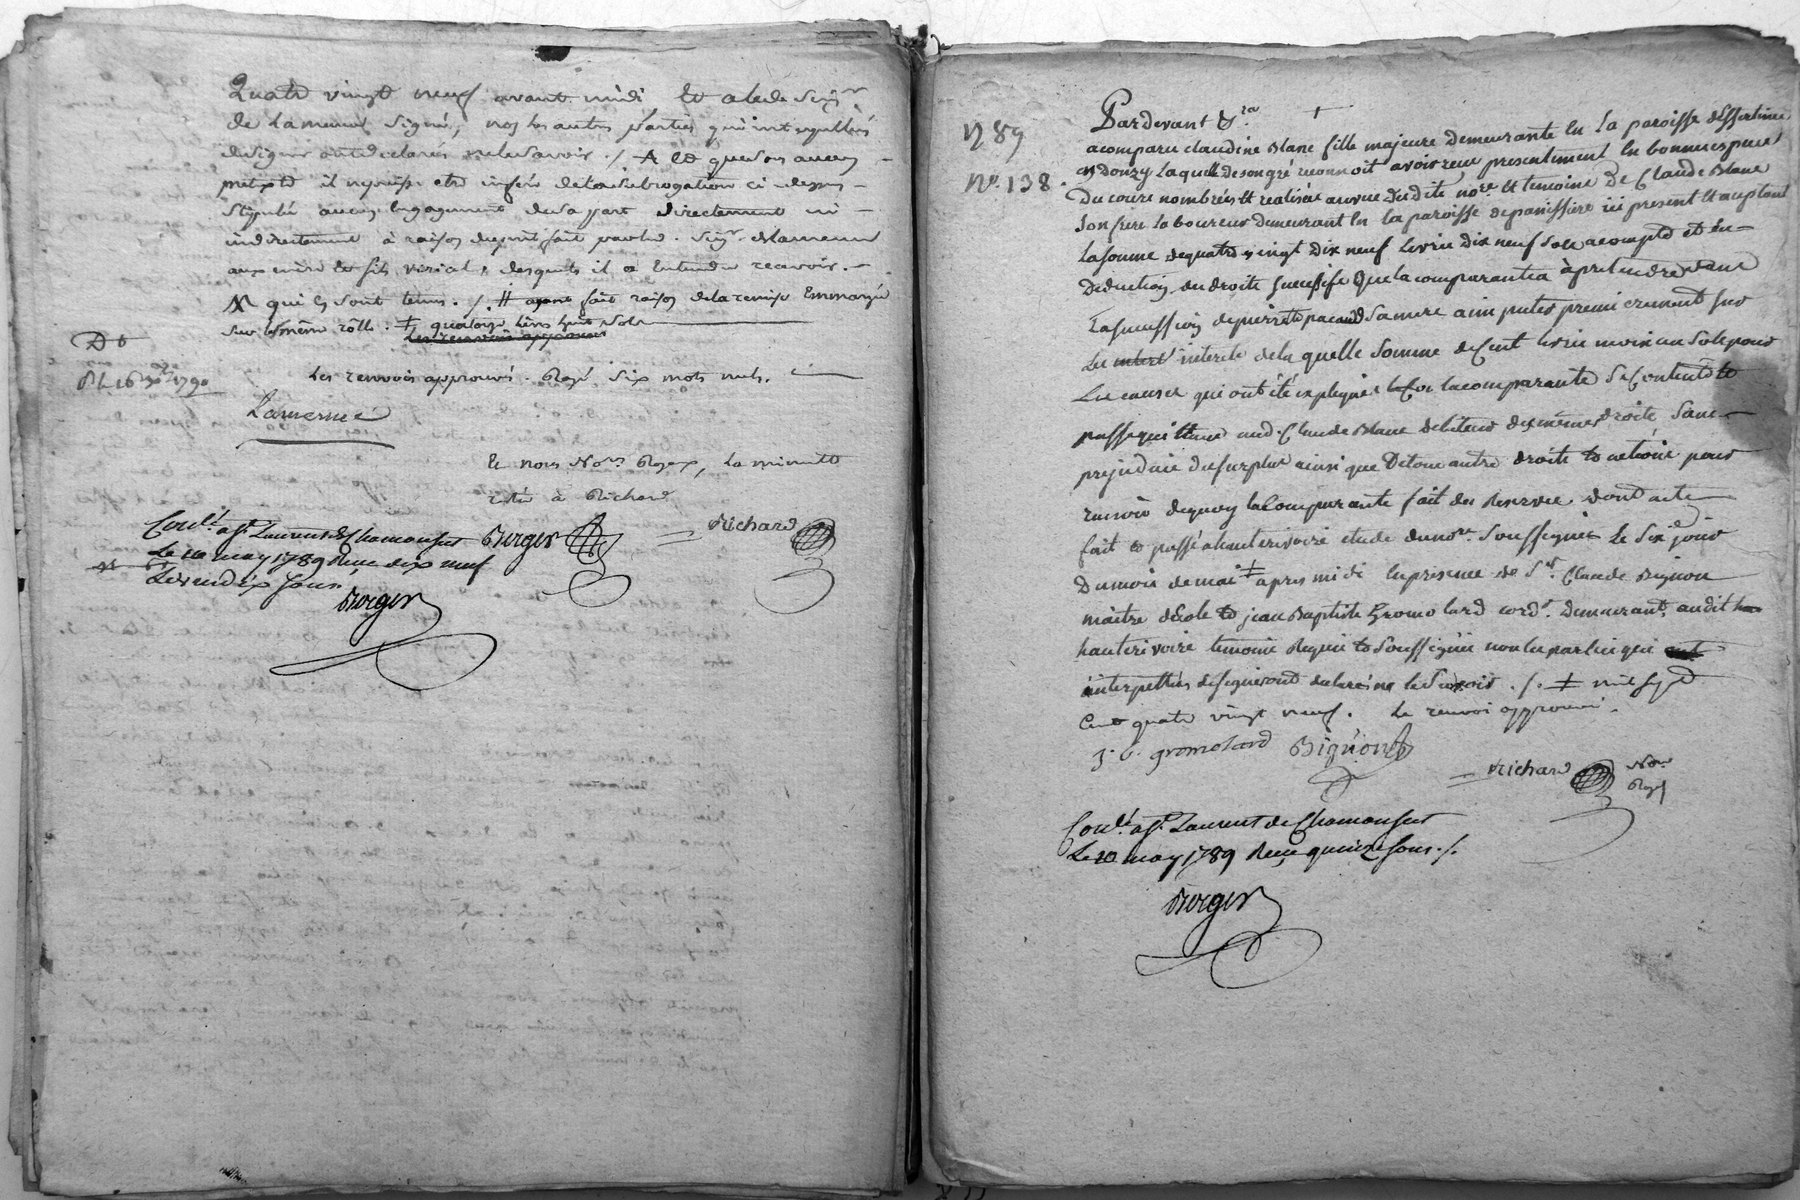 Quatre vingt neuf avant midi, Et a ledt Sieur
de Lamerné signé, non les autres parties qui interpellées
de signer ont déclaré ne le savoir ./. A ce que sous aucun
pretexte il ne puisse etre inféré de la subrogation ci dessus
Stipulée aucun Engagement de sa part directement ni
indirectement à raison du pret fait par led. Sieur
aux mère et fils, desquels il a Entendu recevoir.
qui ils sont tenus. ./. # ayant fait raison de la remise Emmargée
sur le même rôlle. ‡ quatorze livres huit sols
Les renvois approuvés
Do
Les renvois approuvés. Rayé Six mots nuls.
Lamerné
Et nous Nores Royaux, la minute
restée à Richard
Conlé. à St. Laurent de Chamousset
Le 10 may 1789 Reçu dix neuf
Livres dix sous
Berger
Berger
Richard
1789
No. 138.
Pardevant &ra
a comparu claudine Blanc fille majeure demeurante En la paroisse d'Essertines
en donzy Laquelle de son gré reconnoit avoir reçu presentement En bonnes espèces
Du cours nombrées Et realisées au vue Desdits nore. Et temoins De Claude Blanc
Son frere laboureur demeurant En la paroisse de panissiere ici present Et acceptant
La somme de quatre vingt Dix neuf Livres Dix neuf Sols acompte et En
Deduction des droits successifs Que la comparante a à pretendre dans
La succession de pierrette pacaud Sa mere a imputer premierement sur
Les interets de la quelle somme de Cent livres moins un Sol pour
Les causes qui ont été expliquées la comparante Se Contente Et
passe quittance aud. Claude Blanc debiteur des mêmes droits, Sans
prejudice du surplus ainsi que De tous autres droits Et actions pour
raison de quoy la Comparante fait des Reserves dont acte
fait Et passé a hauterivoire etude du nore. Soussigné Le Six jour
Du mois de mai ‡ apres midi En presence de Sr. Claude Bignon
maître d'Ecole Et jean Baptiste Gromolard cordr. Demeurant. audit
hauterivoire temoins Requis Et Soussignés non les parties qui
interpellées de signer ont declaré ne le Savoir ./. ‡ mil sept
Cent quatre vingt neuf. Le renvoi approuvé.
J. B. gromolard Bignon
Richard Nore.
Royal
Conlé. à St. Laurent de Chamousset
Le 10 may 1789 Reçu quinze Sous ./.
Berger